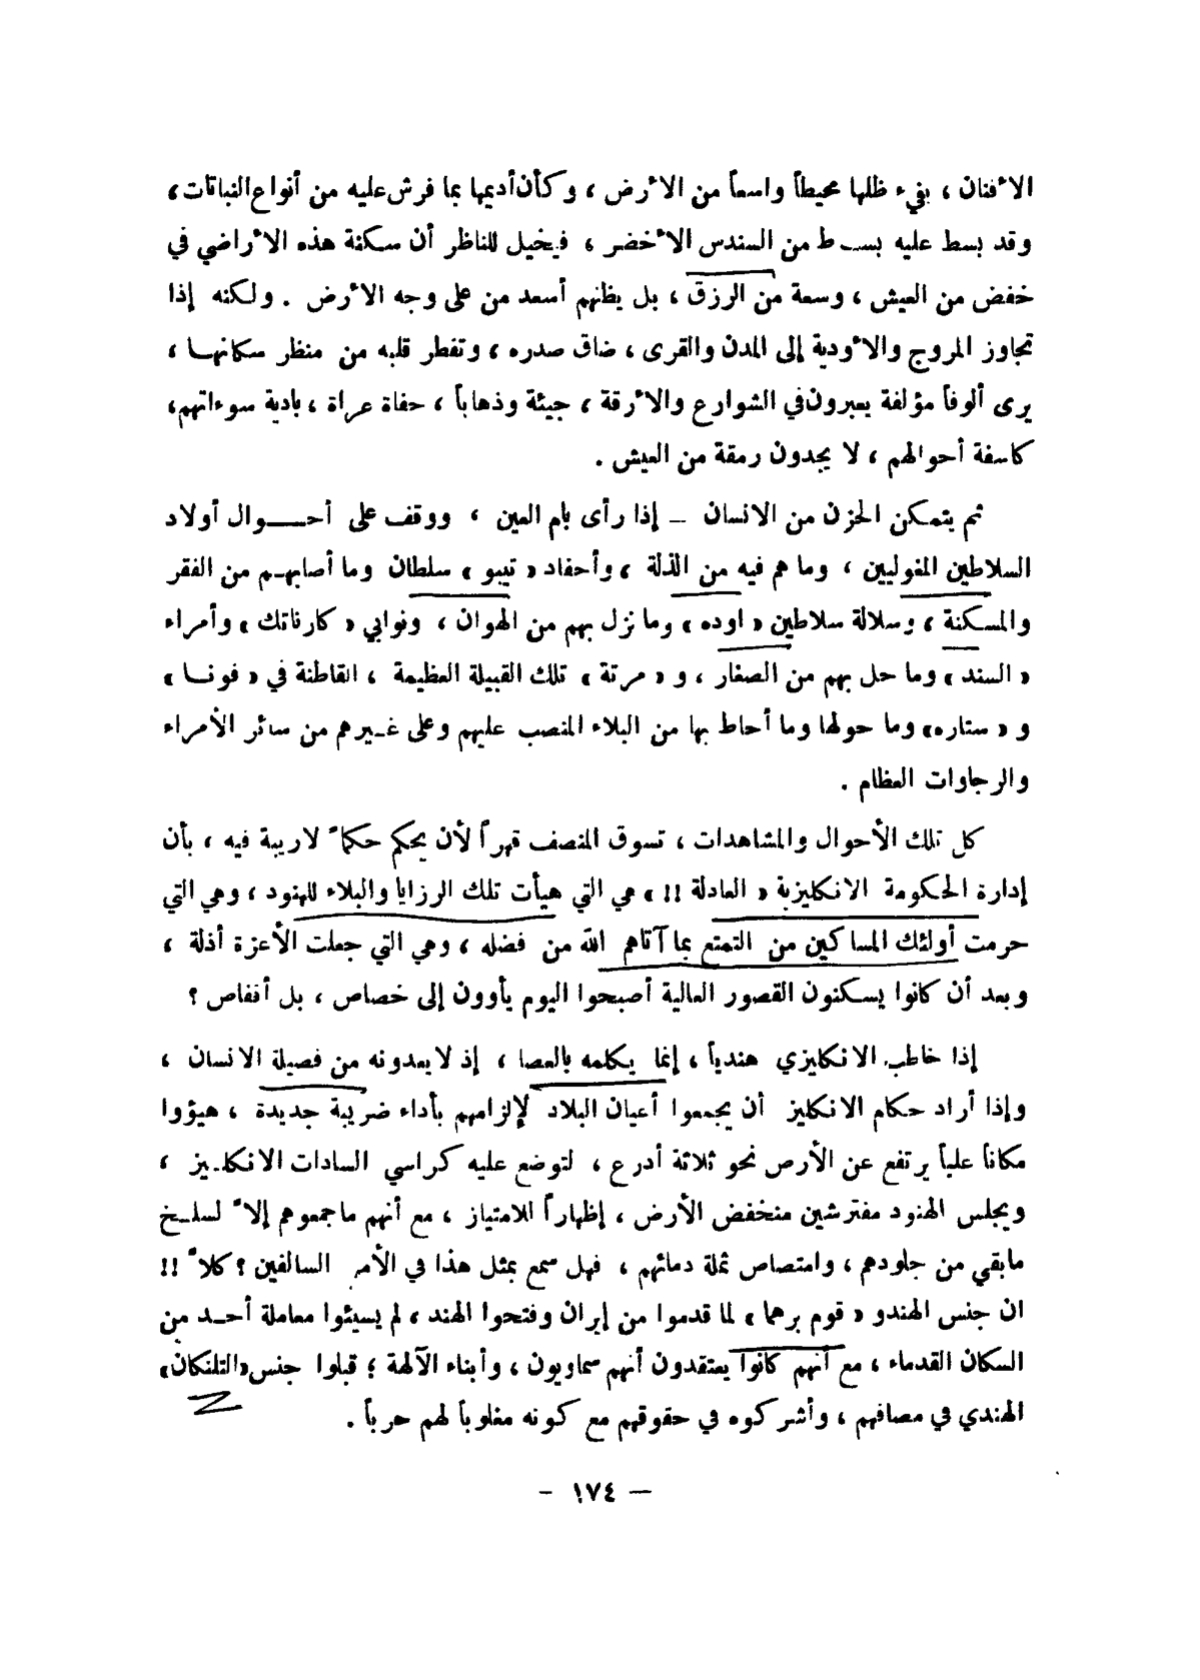 الأفنان ، يفيء ظلها محيطاً واسعاً من الأرض ، وكأن أديمها بما فرش عليه من أنواع النباتات ،
وقد بسط عليه بسط من السندس الأخضر ، فيخيل للناظر أن سكنة هذه الأراضي في
خفض من العيش ، وسعة من الرزق ، بل يظنهم أسعد من على وجه الأرض . ولكنه إذا
تجاوز المروج والأودية إلى المدن والقرى ، ضاق صدره ، وتفطر قلبه من منظر سكانها ،
يرى ألوفاً مؤلفة يعبرون في الشوارع والأزقة ، جيئة وذهاباً ، حفاة عراة ، بادية سوءاتهم ،
كاسفة أحوالهم ، لا يجدون رمقة من العيش .
ثم يتمكن الحزن من الانسان – إذا رأى بأم العين ، ووقف على أحوال أولاد
السلاطين المغوليين ، وما هم فيه من الذلة ، وأحفاد « تيبو » سلطان وما أصابهم من الفقر
والمسكنة ، وسلالة سلاطين « اوده » وما نزل بهم من الهوان ، ونوابي « كارناتك » وأمراء
« السند » وما حل بهم من الصغار ، و « مرتة » تلك القبيلة العظيمة ، القاطنة في « فونا »
و « ستاره » وما حولها وما أحاط بها من البلاء المنصب عليهم وعلى غيرهم من سائر الأمراء
والرجاوات العظام .
كل تلك الأحوال والمشاهدات ، تسوق المنصف قهراً لأن يحكم حكماً لا ريبة فيه ، بأن
إدارة الحكومة الانكليزية « العادلة !! » هي التي هيأت تلك الرزايا والبلاء للهنود ، وهي التي
حرمت أولئك المساكين من التمتع بما آتاهم الله من فضله ، وهي التي جعلت الأعزة أذلة ،
وبعد أن كانوا يسكنون القصور العالية أصبحوا اليوم يأوون إلى خصاص ، بل أقفاص ؟
إذا خاطب الانكليزي هندياً ، إنما يكلمه بالعصا ، إذ لا يعدونه من فصيلة الانسان ،
وإذا أراد حكام الانكليز أن يجمعوا أعيان البلاد لإلزامهم بأداء ضريبة جديدة ، هيؤوا
مكاناً علياً يرتفع عن الأرض نحو ثلاثة أدرع ، لتوضع عليه كراسي السادات الانكليز ،
ويجلس الهنود مفترشين منخفض الأرض ، إظهاراً للامتياز ، مع أنهم ما جمعوهم إلاّ لسلخ
ما بقي من جلودهم ، وامتصاص ثملة دمائهم ، فهل سمع بمثل هذا في الأمم السالفين ؟ كلاّ !!
ان جنس الهندو « قوم برهما » لما قدموا من إيران وفتحوا الهند ، لم يسيئوا معاملة أحد من
السكان القدماء ، مع أنهم كانوا يعتقدون أنهم سماويون ، وأبناء الآلهة ؛ قبلوا جنس « التلنكان »
الهندي في مصافهم ، وأشركوه في حقوقهم مع كونه مغلوباً لهم حرباً .
– ١٧٤ –